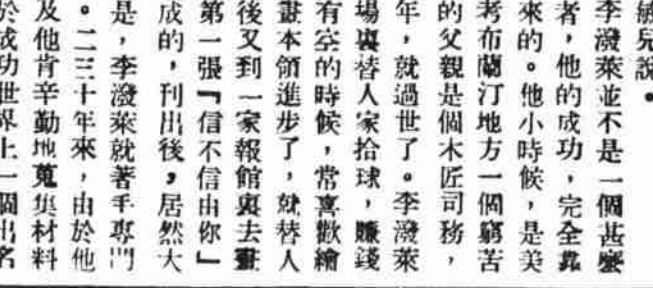 敏兒說。
李潑萊並不是一個甚麼
者，他的成功，完全靠
來的。他小時候，是美
考布蘭汀地方一個窮苦
的父親是個木匠司務，
年，就過世了。李潑萊
場裏替人家拾球，賺錢
有空的時候，常喜歡繪
畫本領進步了，就替人
後又到一家報館裏去畫
第一張『信不信由你』
成的，刊出後，居然大
是，李潑萊就著手專門
。二三十年來，由於他
及他肯辛勤地蒐集材料
於成功世界上一個出名